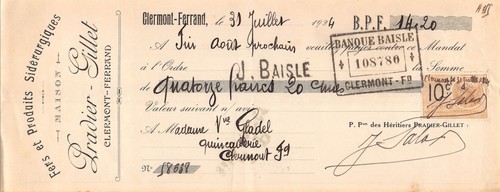 Fers et Produits Sidérurgiques
MAISON
Pradier-Gillet
CLERMONT-FERRAND
Clermont-Ferrand, le 31 Juillet 1924 B.P.F. 14,20
A Fin Août prochain veuillez payer contre ce Mandat
à l'Ordre la Somme
J. BAISLE
BANQUE BAISLE
108780
CLERMONT-FD
de quatorze francs 20 cmes
Valeur suivant n/avis
10c
A Madame Vve Gadel
quincaillerie
Clermont Fd
P. Pon des Héritiers PRADIER-GILLET
No 58689